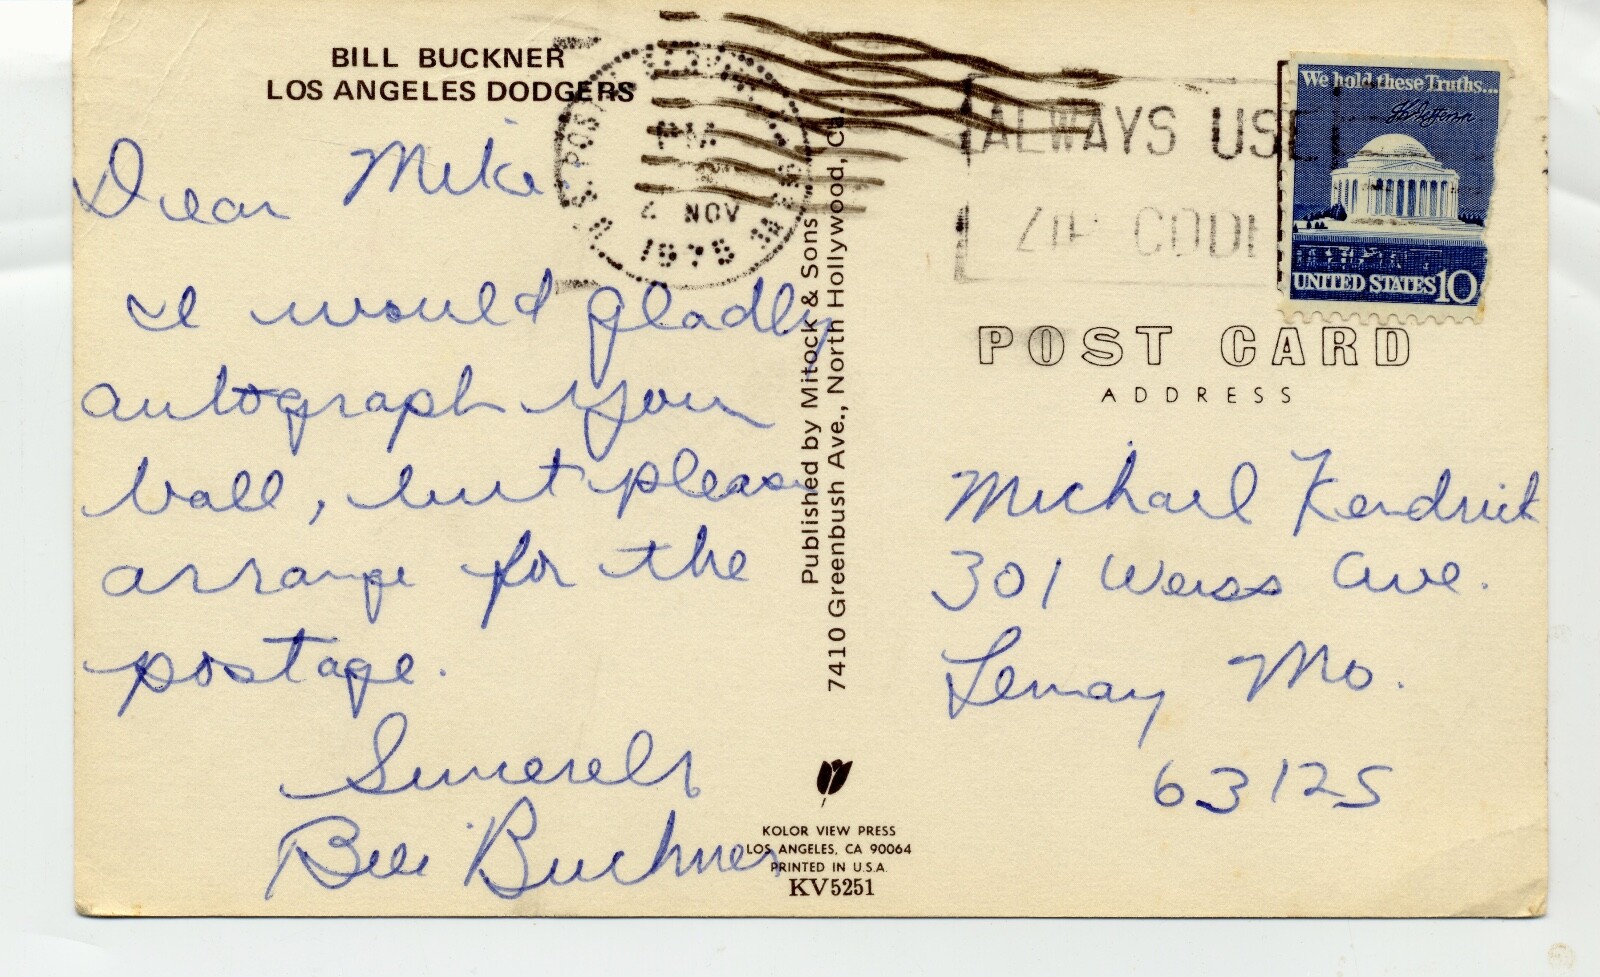 BILL BUCKNER
LOS ANGELES DODGERS
Dear Mike
I would gladly
autograph your
ball, but please
arrange for the
postage.
Sincerely
Bill Buckner
U.S. POSTAL
PM
4 NOV
1975
ALWAYS USE
ZIP CODE
We hold these Truths...
Th Jefferson
UNITED STATES 10
Published by Mitock & Sons
7410 Greenbush Ave., North Hollywood, Ca.
POST CARD
ADDRESS
Michael Kendrick
301 Weiss Ave.
Lemay Mo.
63125
KOLOR VIEW PRESS
LOS ANGELES, CA 90064
PRINTED IN U.S.A.
KV5251